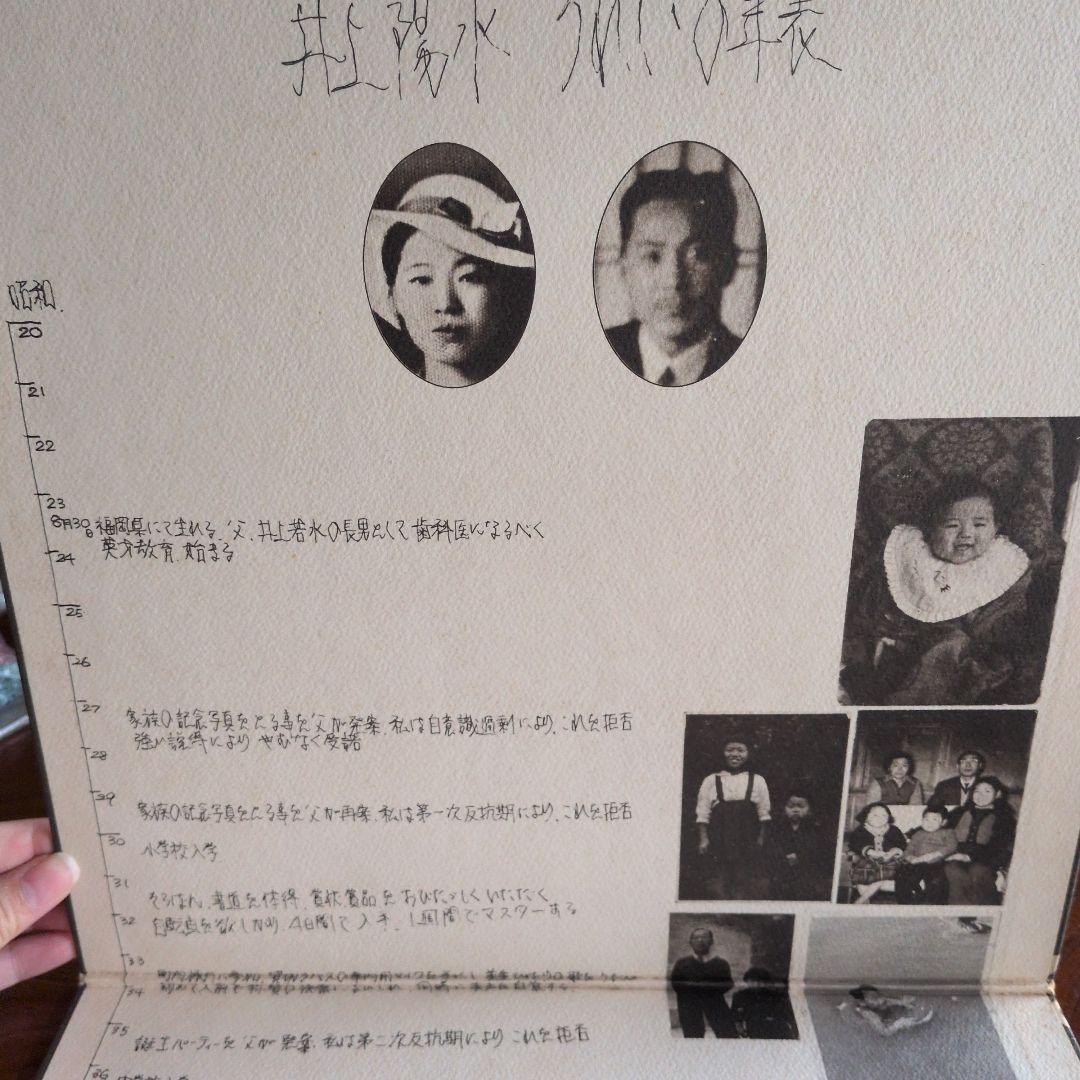 井上陽水 うれしいの年表
昭和
20
21
22
23
8月30日 福岡県にて生れる。父、井上若水の長男として歯科医になるべく
英才教育、始まる
24
25
26
27
家族の記念写真をとる事を父が発案、私は自意識過剰により、これを拒否
強い説得により やむなく受諾
28
29
家族の記念写真をとる事を父が再案、私は第一次反抗期により、これを拒否
30
小学校入学
31
そろばん、書道を体得、賞状賞品を おびただしくいただく
32
自転車を欲しがり、4日間で入手、1週間でマスターする
33
34
35
誕生パーティーを父が発案、私は第二次反抗期により これを拒否
36